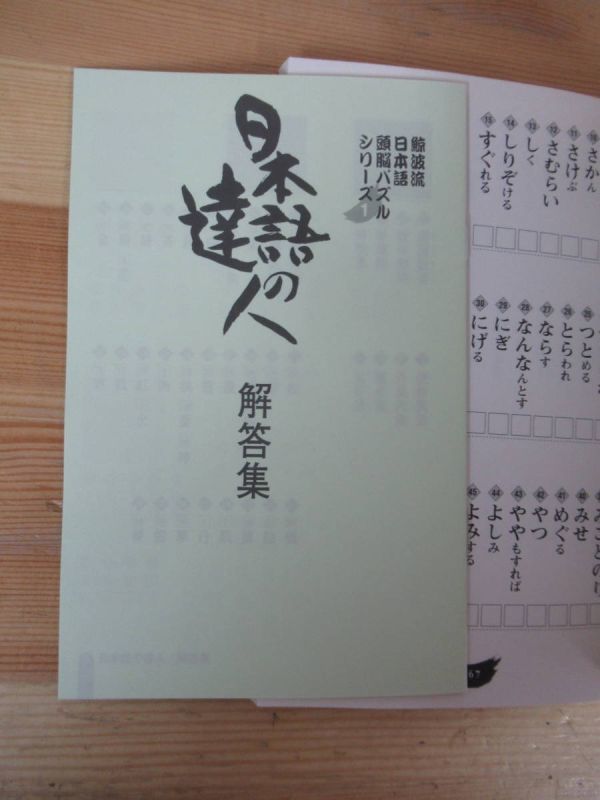 鯨波流
日本語
頭脳パズル
シリーズ1
日本語の
達人
解答集
10 さかん
11 さけぶ
12 さむらい
13 しく
14 しりぞける
15 すぐれる
25 つとめる
26 とらわれ
27 ならす
28 なんなんとす
29 にぎ
30 にげる
みことのり
40 みせ
41 めぐる
42 やつ
43 ややもすれば
44 よしみ
45 よみする
67